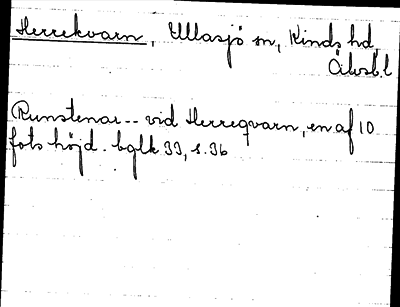 Herrekvarn, Ullasjö sn, Kinds hd,
Älvsb.l
Runstenar -- vid Herreqvarn, en af 10
fots höjd. bglk 33, s. 36